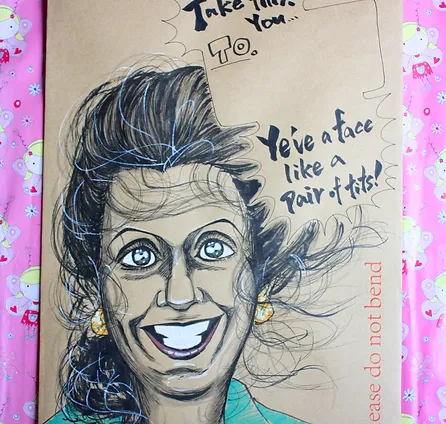 Take
You...
To.
Ye've a face
like a
Pair of tits!
ease do not bend